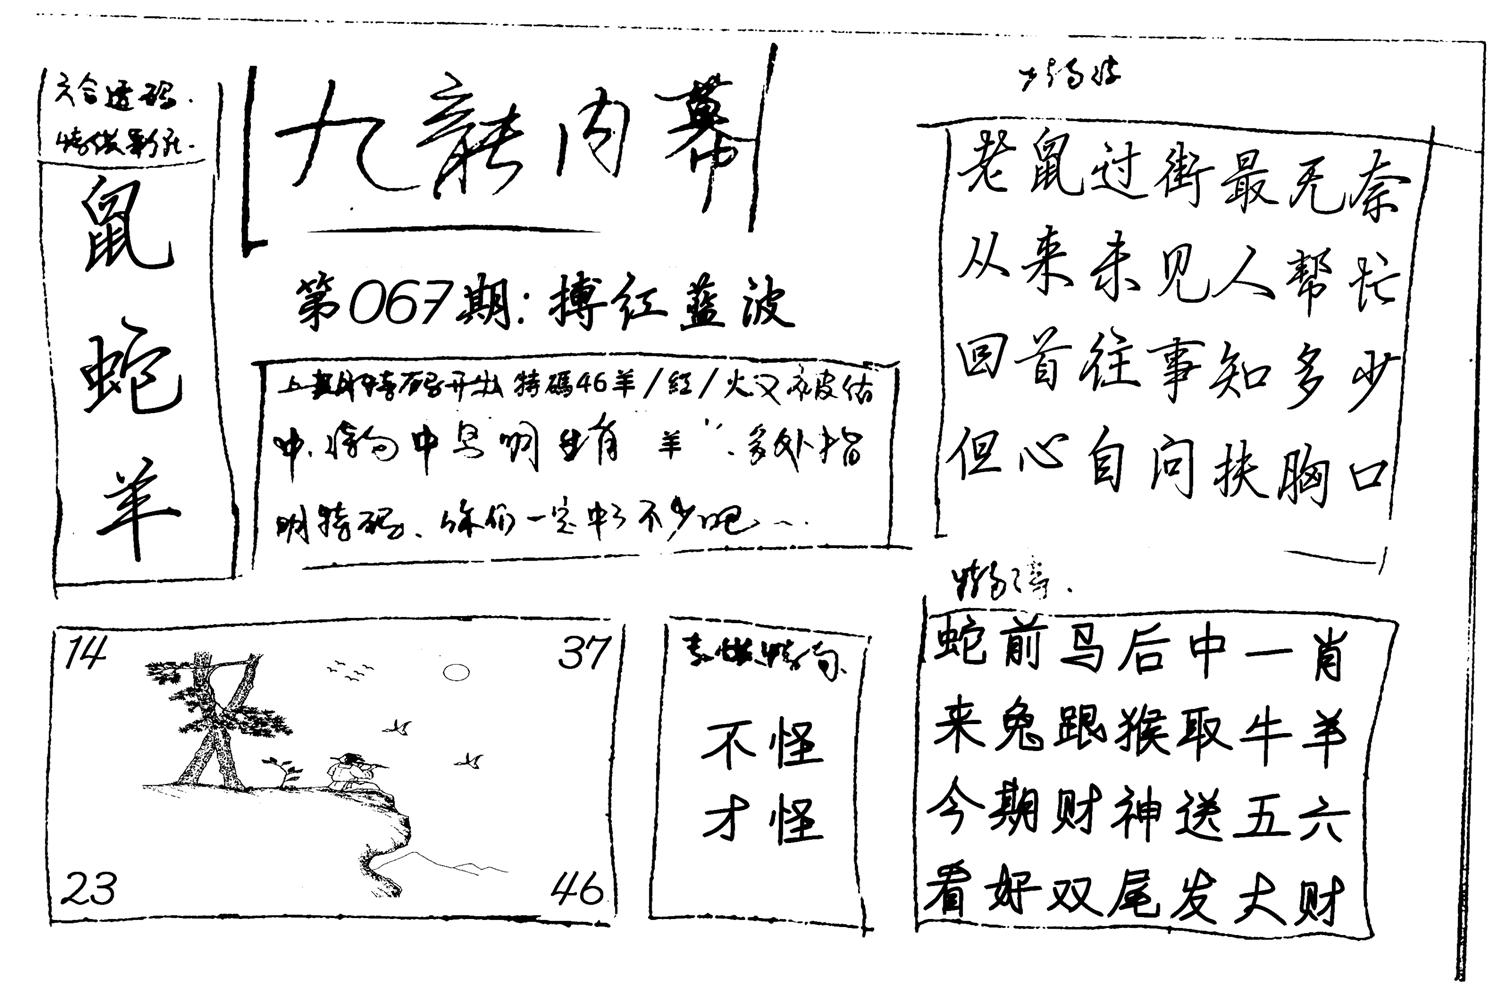 六合透码.
鼠
蛇
羊
九龍内幕
第067期:搏红蓝波
上期特码开出特碼46羊/红/火又被估
中.特句中写明生肖"羊".多处指
明特码、你们一定中了不少吧...
老鼠过街最无奈
从来未见人帮忙
回首往事知多少
但心自问扶胸口
14
37
23
46
不怪
才怪
蛇前马后中一肖
来兔跟猴取牛羊
今期财神送五六
看好双尾发大财